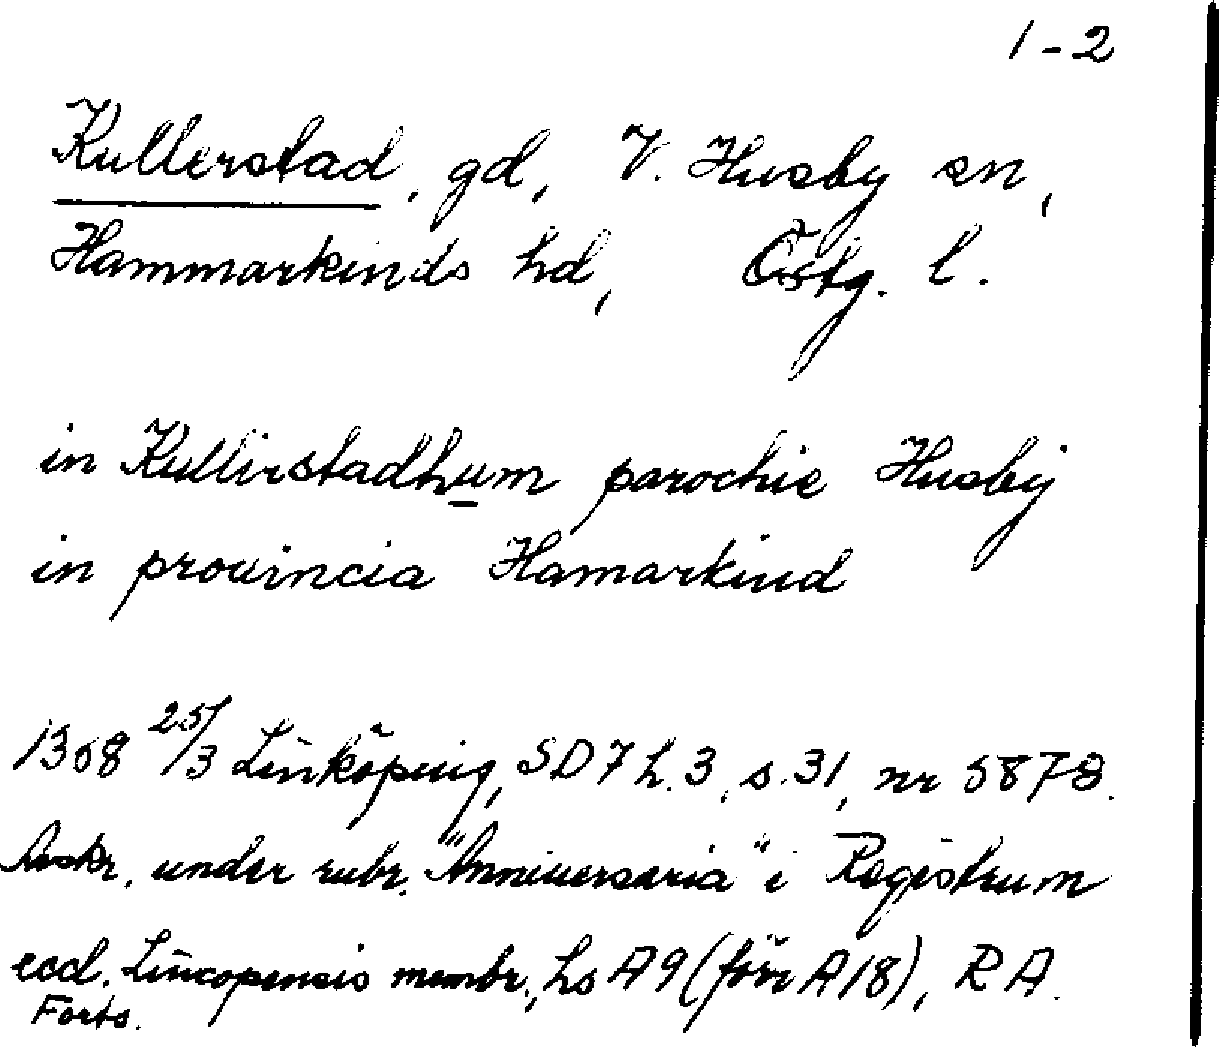 1-2
Kullerstad, gd, V. Husby sn,
Hammarkinds hd, Östg. l.
in Kullirstadhum parochie Husby
in prouincia Hamarkind
1358 25/3 Linköping, SD 7 h. 3, s. 31, nr 5878.
Avskr. under rubr. "Anniuersaria" i Registrum
eccl. Lincopensis membr., hs A 9 (förr A 18), RA.
Forts.